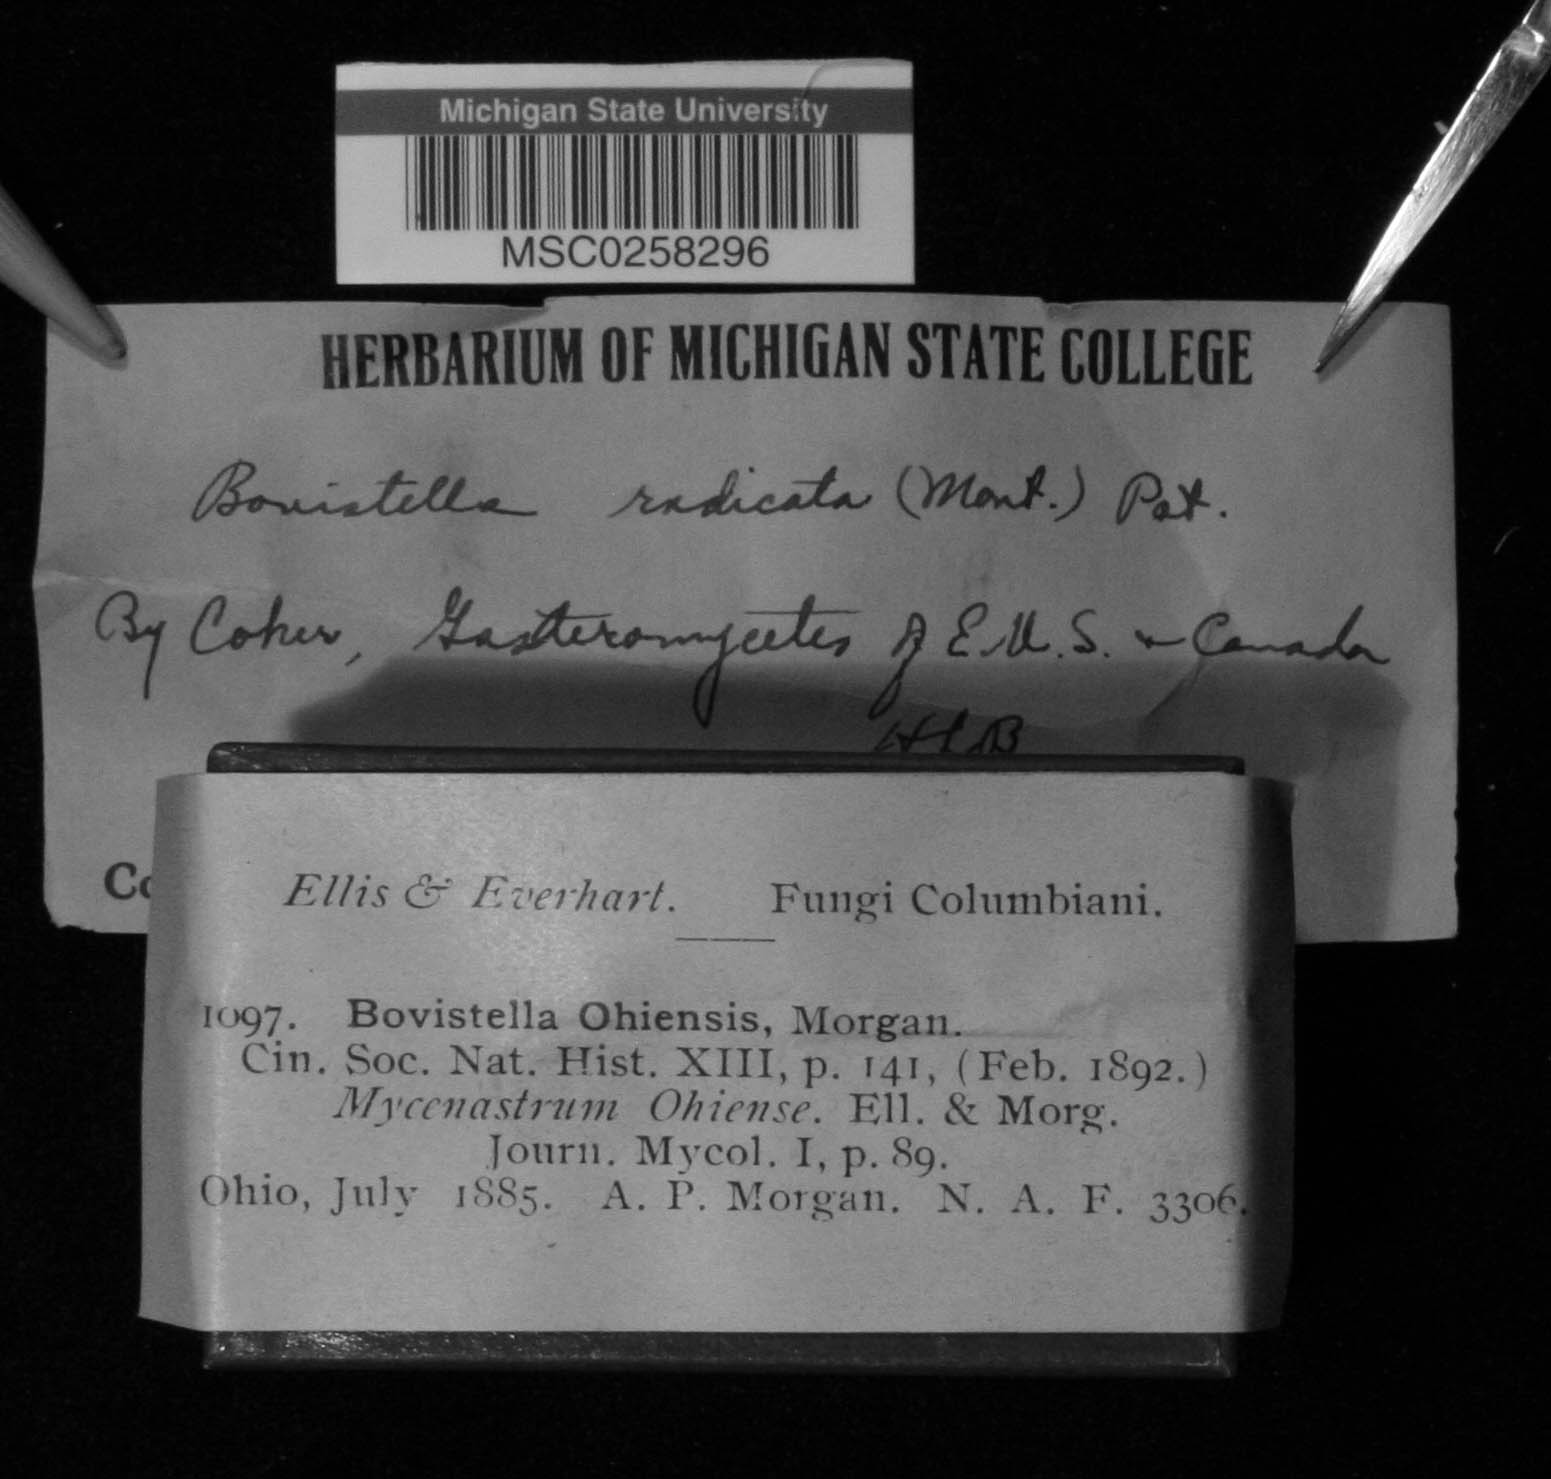 Michigan State University
MSC0258296
HERBARIUM OF MICHIGAN STATE COLLEGE
Bovistella radicata (Mont.) Pat.
By Coker, Gasteromycetes of E.U.S. & Canada
HLB
Co
Ellis & Everhart. Fungi Columbiani.
1097. Bovistella Ohiensis, Morgan.
Cin. Soc. Nat. Hist. XIII, p. 141, (Feb. 1892.)
Mycenastrum Ohiense. Ell. & Morg.
Journ. Mycol. I, p. 89.
Ohio, July 1885. A. P. Morgan. N. A. F. 3306.